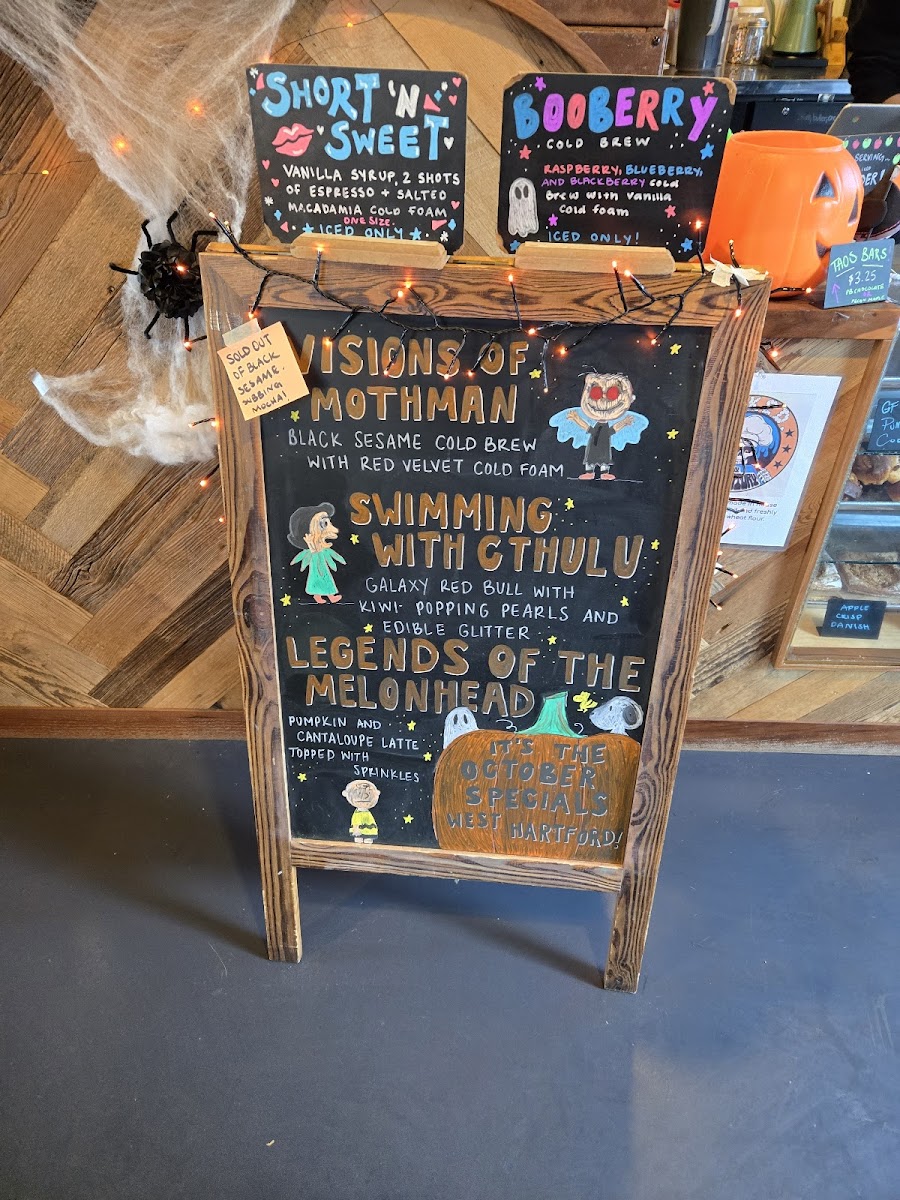 SHORT 'N
SWEET
VANILLA SYRUP, 2 SHOTS
OF ESPRESSO + SALTED
MACADAMIA COLD FOAM
ONE SIZE
ICED ONLY
BOOBERRY
COLD BREW
RASPBERRY, BLUEBERRY,
AND BLACKBERRY COLD
BREW WITH VANILLA
COLD FOAM
ICED ONLY!
SERVING
TAOS BARS
$3.25
PB CHOCOLATE
SOLD OUT
OF BLACK
SESAME.
SUBBING
MOCHA!
VISIONS OF
MOTHMAN
BLACK SESAME COLD BREW
WITH RED VELVET COLD FOAM
SWIMMING
WITH CTHULU
GALAXY RED BULL WITH
KIWI- POPPING PEARLS AND
EDIBLE GLITTER
LEGENDS OF THE
MELONHEAD
PUMPKIN AND
CANTALOUPE LATTE
TOPPED WITH
SPRINKLES
IT'S THE
OCTOBER
SPECIALS
WEST HARTFORD!
GF
freshly
wheat flour.
APPLE
CRISP
DANISH